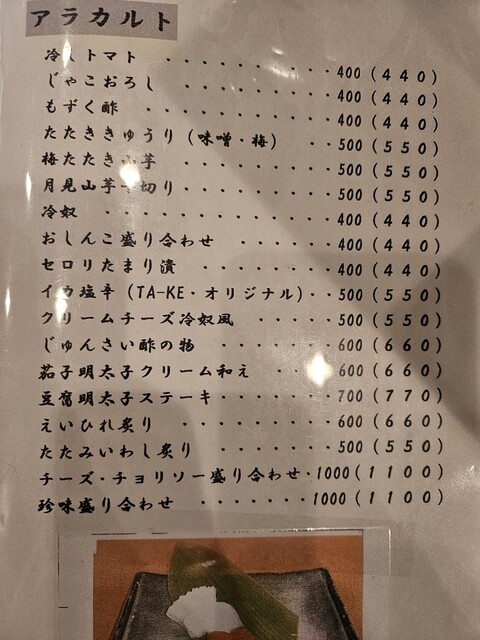 アラカルト
冷しトマト ・・・・・・・・・・・400(440)
じゃこおろし ・・・・・・・・・・400(440)
もずく酢 ・・・・・・・・・・・・400(440)
たたききゅうり(味噌・梅) ・・500(550)
梅たたき山芋 ・・・・・・・・・・500(550)
月見山芋千切り・・・・・・・・・500(550)
冷奴 ・・・・・・・・・・・・・・400(440)
おしんこ盛り合わせ ・・・・・・・400(440)
セロリたまり漬 ・・・・・・・・・400(440)
イカ塩辛(TA-KE・オリジナル)・・500(550)
クリームチーズ冷奴風 ・・・・・500(550)
じゅんさい酢の物 ・・・・・・・・600(660)
茄子明太子クリーム和え ・・・・・600(660)
豆腐明太子ステーキ・・・・・・・700(770)
えいひれ炙り ・・・・・・・・・・600(660)
たたみいわし炙り ・・・・・・・・500(550)
チーズ・チョリソー盛り合わせ・1000(1100)
珍味盛り合わせ ・・・・・・・1000(1100)